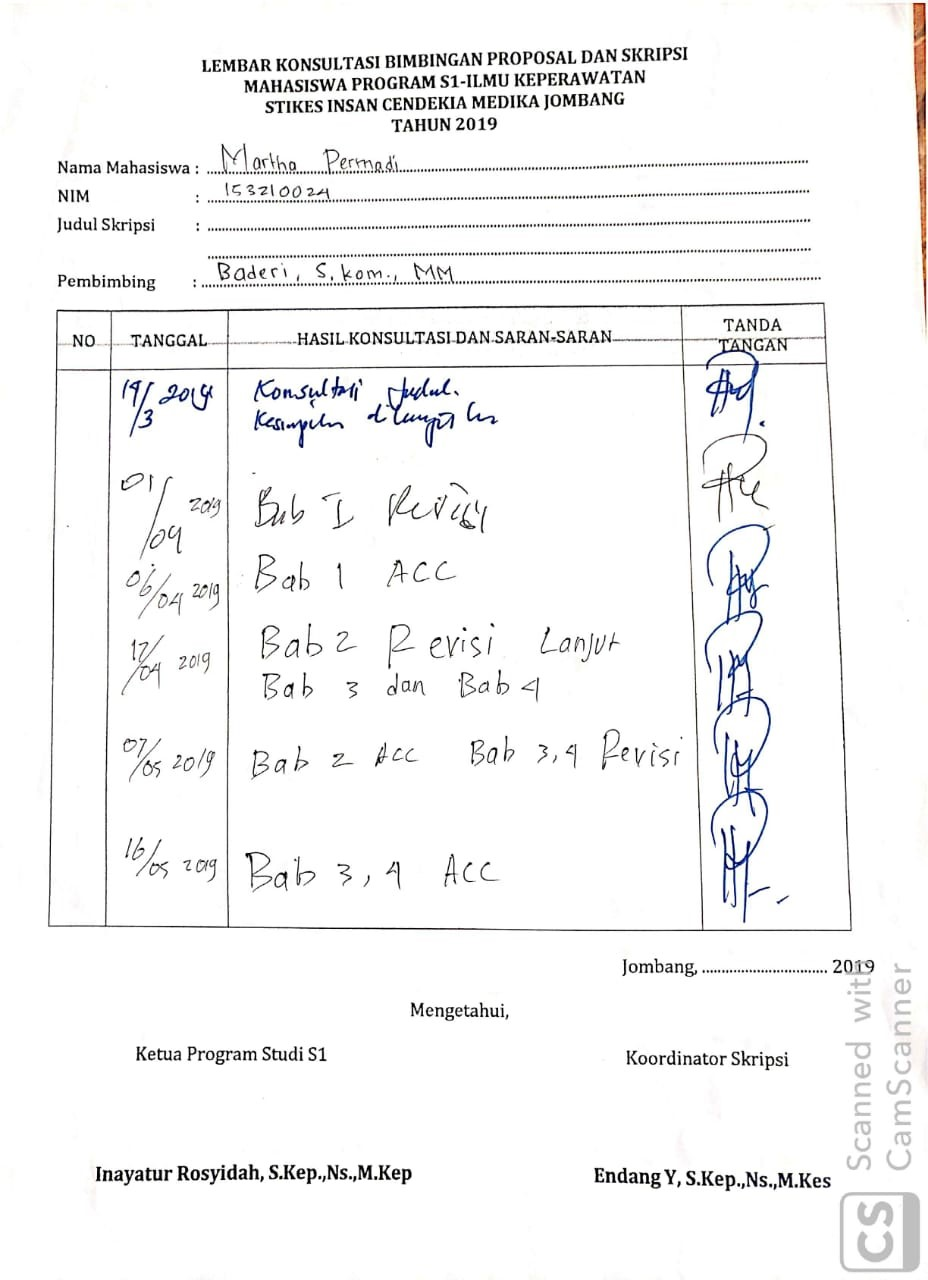 LEMBAR KONSULTASI BIMBINGAN PROPOSAL DAN SKRIPSI
MAHASISWA PROGRAM S1-ILMU KEPERAWATAN
STIKES INSAN CENDEKIA MEDIKA JOMBANG
TAHUN 2019
Nama Mahasiswa : Martha Permadi
NIM : 153210024
Judul Skripsi :
Pembimbing : Baderi, S.kom., MM
NO TANGGAL HASIL KONSULTASI DAN SARAN-SARAN TANDA TANGAN
19/3 2019 Konsultasi Judul.
01/04 2019 Bab I Revisi
06/04 2019 Bab 1 ACC
12/04 2019 Bab 2 Revisi Lanjut
Bab 3 dan Bab 4
07/05 2019 Bab 2 Acc Bab 3,4 Revisi
16/05 2019 Bab 3,4 ACC
Jombang, .............................. 2019
Mengetahui,
Ketua Program Studi S1 Koordinator Skripsi
Inayatur Rosyidah, S.Kep.,Ns.,M.Kep Endang Y, S.Kep.,Ns.,M.Kes
CS Scanned with
CamScanner